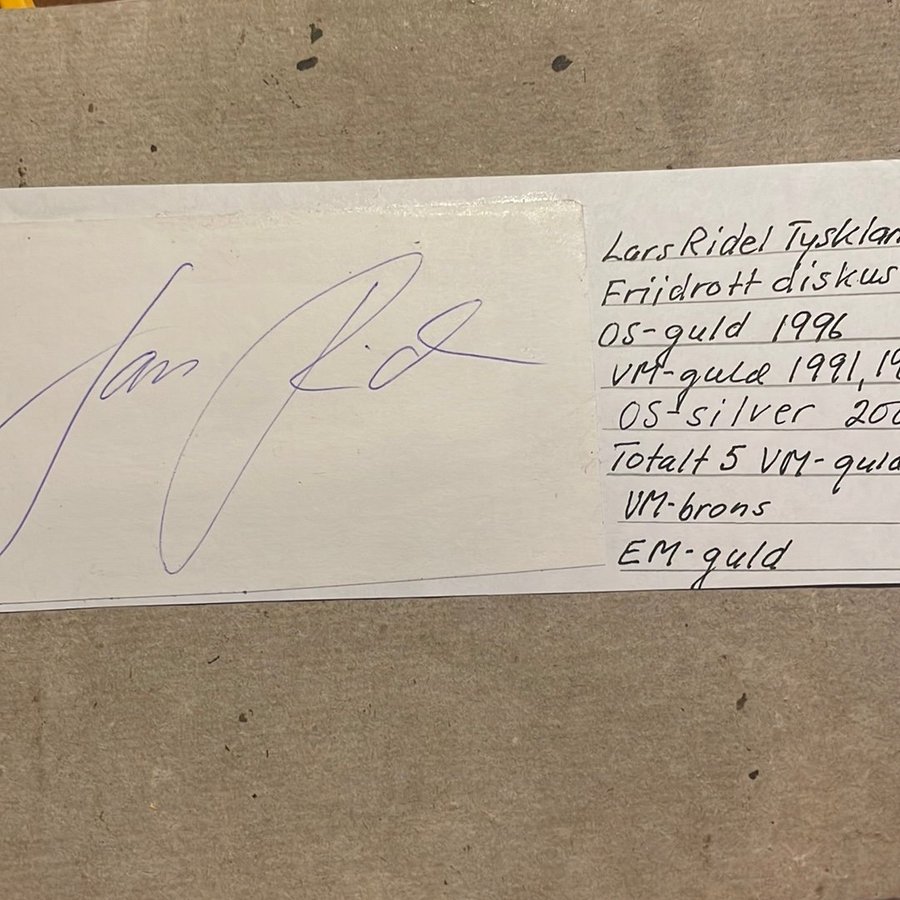 Lars Rid
Lars Ridel Tysklan
Friidrott diskus
OS-guld 1996
VM-guld 1991, 19
OS-silver 200
Totalt 5 VM-guld
VM-brons
EM-guld